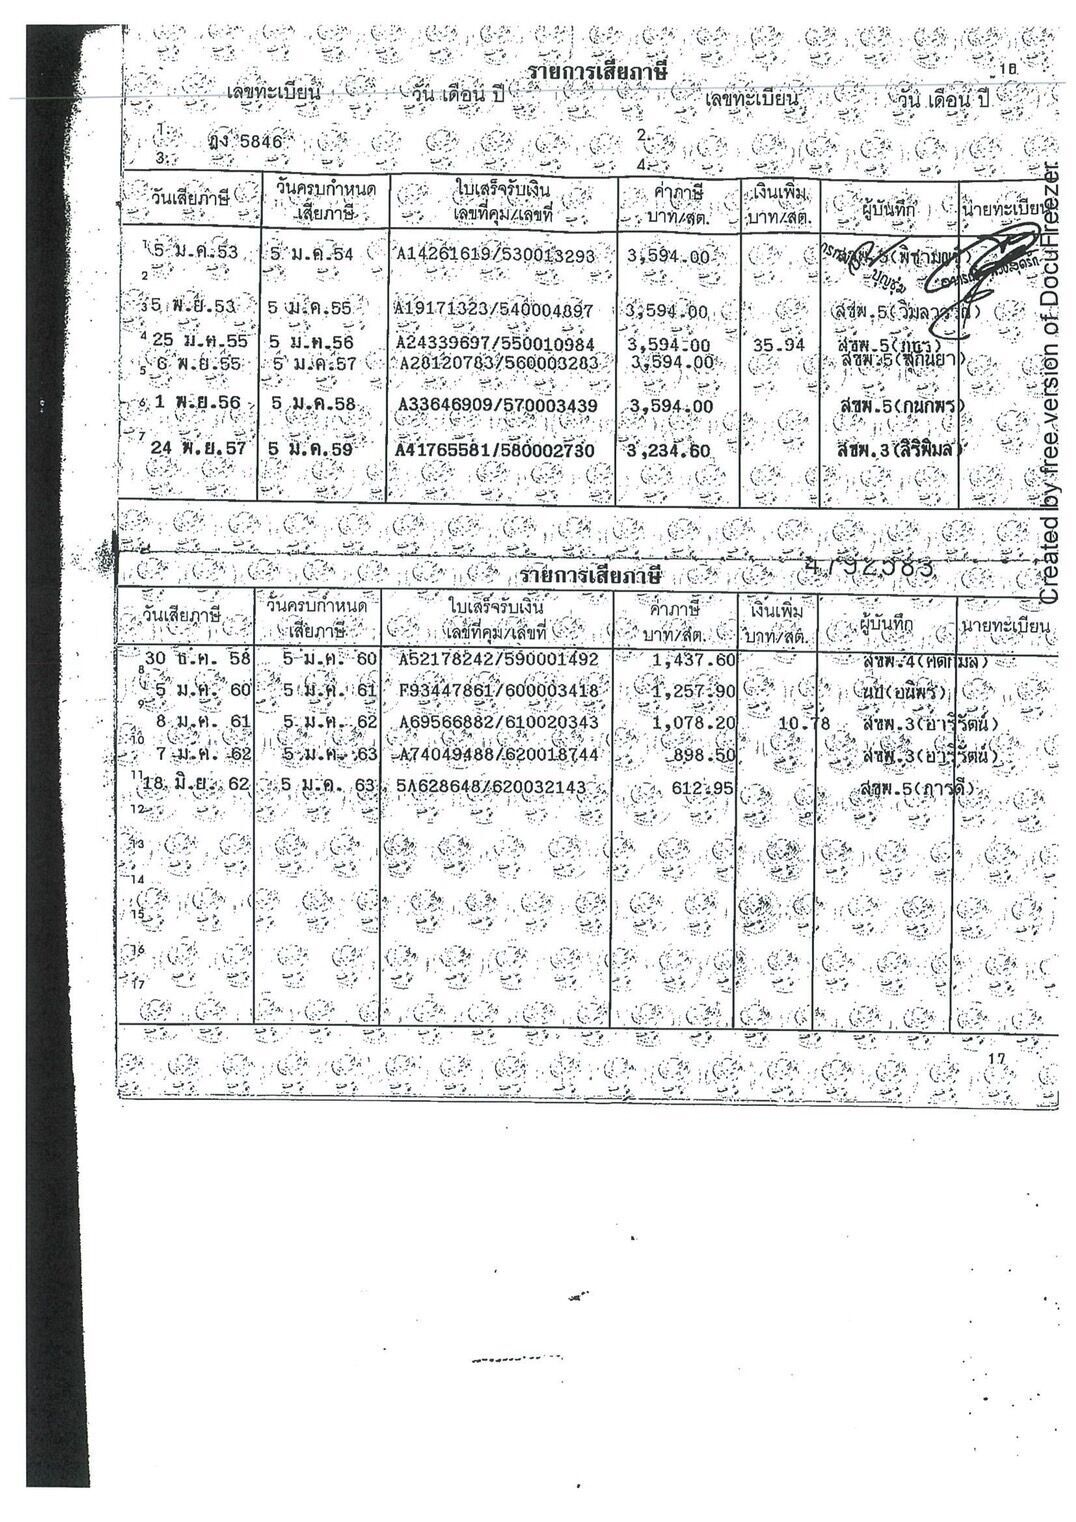 รายการเสียภาษี 16
เลขทะเบียน วัน เดือน ปี เลขทะเบียน วัน เดือน ปี
1. ฎง 5846 2.
3. 4.
วันเสียภาษี วันครบกำหนดเสียภาษี ใบเสร็จรับเงิน เลขที่คุม/เลขที่ ค่าภาษี บาท/สต. เงินเพิ่ม บาท/สต. ผู้บันทึก นายทะเบียน
1 5 ม.ค.53 5 ม.ค.54 A14261619/530013293 3,594.00 (พิชามญชุ์)
2
3 5 พ.ย.53 5 ม.ค.55 A19171323/540004897 3,594.00 สชพ.5(วิมลวรรณ)
4 25 ม.ค.55 5 ม.ค.56 A24339697/550010984 3,594.00 35.94 สชพ.5
5 6 พ.ย.55 5 ม.ค.57 A28120783/560003283 3,594.00 สชพ.5(สุกันยา)
6 1 พ.ย.56 5 ม.ค.58 A33646909/570003439 3,594.00 สชพ.5(กนกพร)
7 24 พ.ย.57 5 ม.ค.59 A41765581/580002730 3,234.60 สชพ.3(สิริพิมล)
รายการเสียภาษี 4792583
วันเสียภาษี วันครบกำหนดเสียภาษี ใบเสร็จรับเงิน เลขที่คุม/เลขที่ ค่าภาษี บาท/สต. เงินเพิ่ม บาท/สต. ผู้บันทึก นายทะเบียน
30 ธ.ค. 58 5 ม.ค. 60 A52178242/590001492 1,437.60 สชพ.4
8 5 ม.ค. 60 5 ม.ค. 61 F93447861/600003418 1,257.90 นป(อนิพร)
9 8 ม.ค. 61 5 ม.ค. 62 A69566882/610020343 1,078.20 10.78 สชพ.3(อารีรัตน์)
10 7 ม.ค. 62 5 ม.ค. 63 A74049488/620018744 898.50 สชพ.3(อารีรัตน์)
11 18 มิ.ย. 62 5 ม.ค. 63 5A628648/620032143 612.95 สชพ.5(ภารดี)
12
13
14
15
16
17
17
Created by free version of DocuFreezer